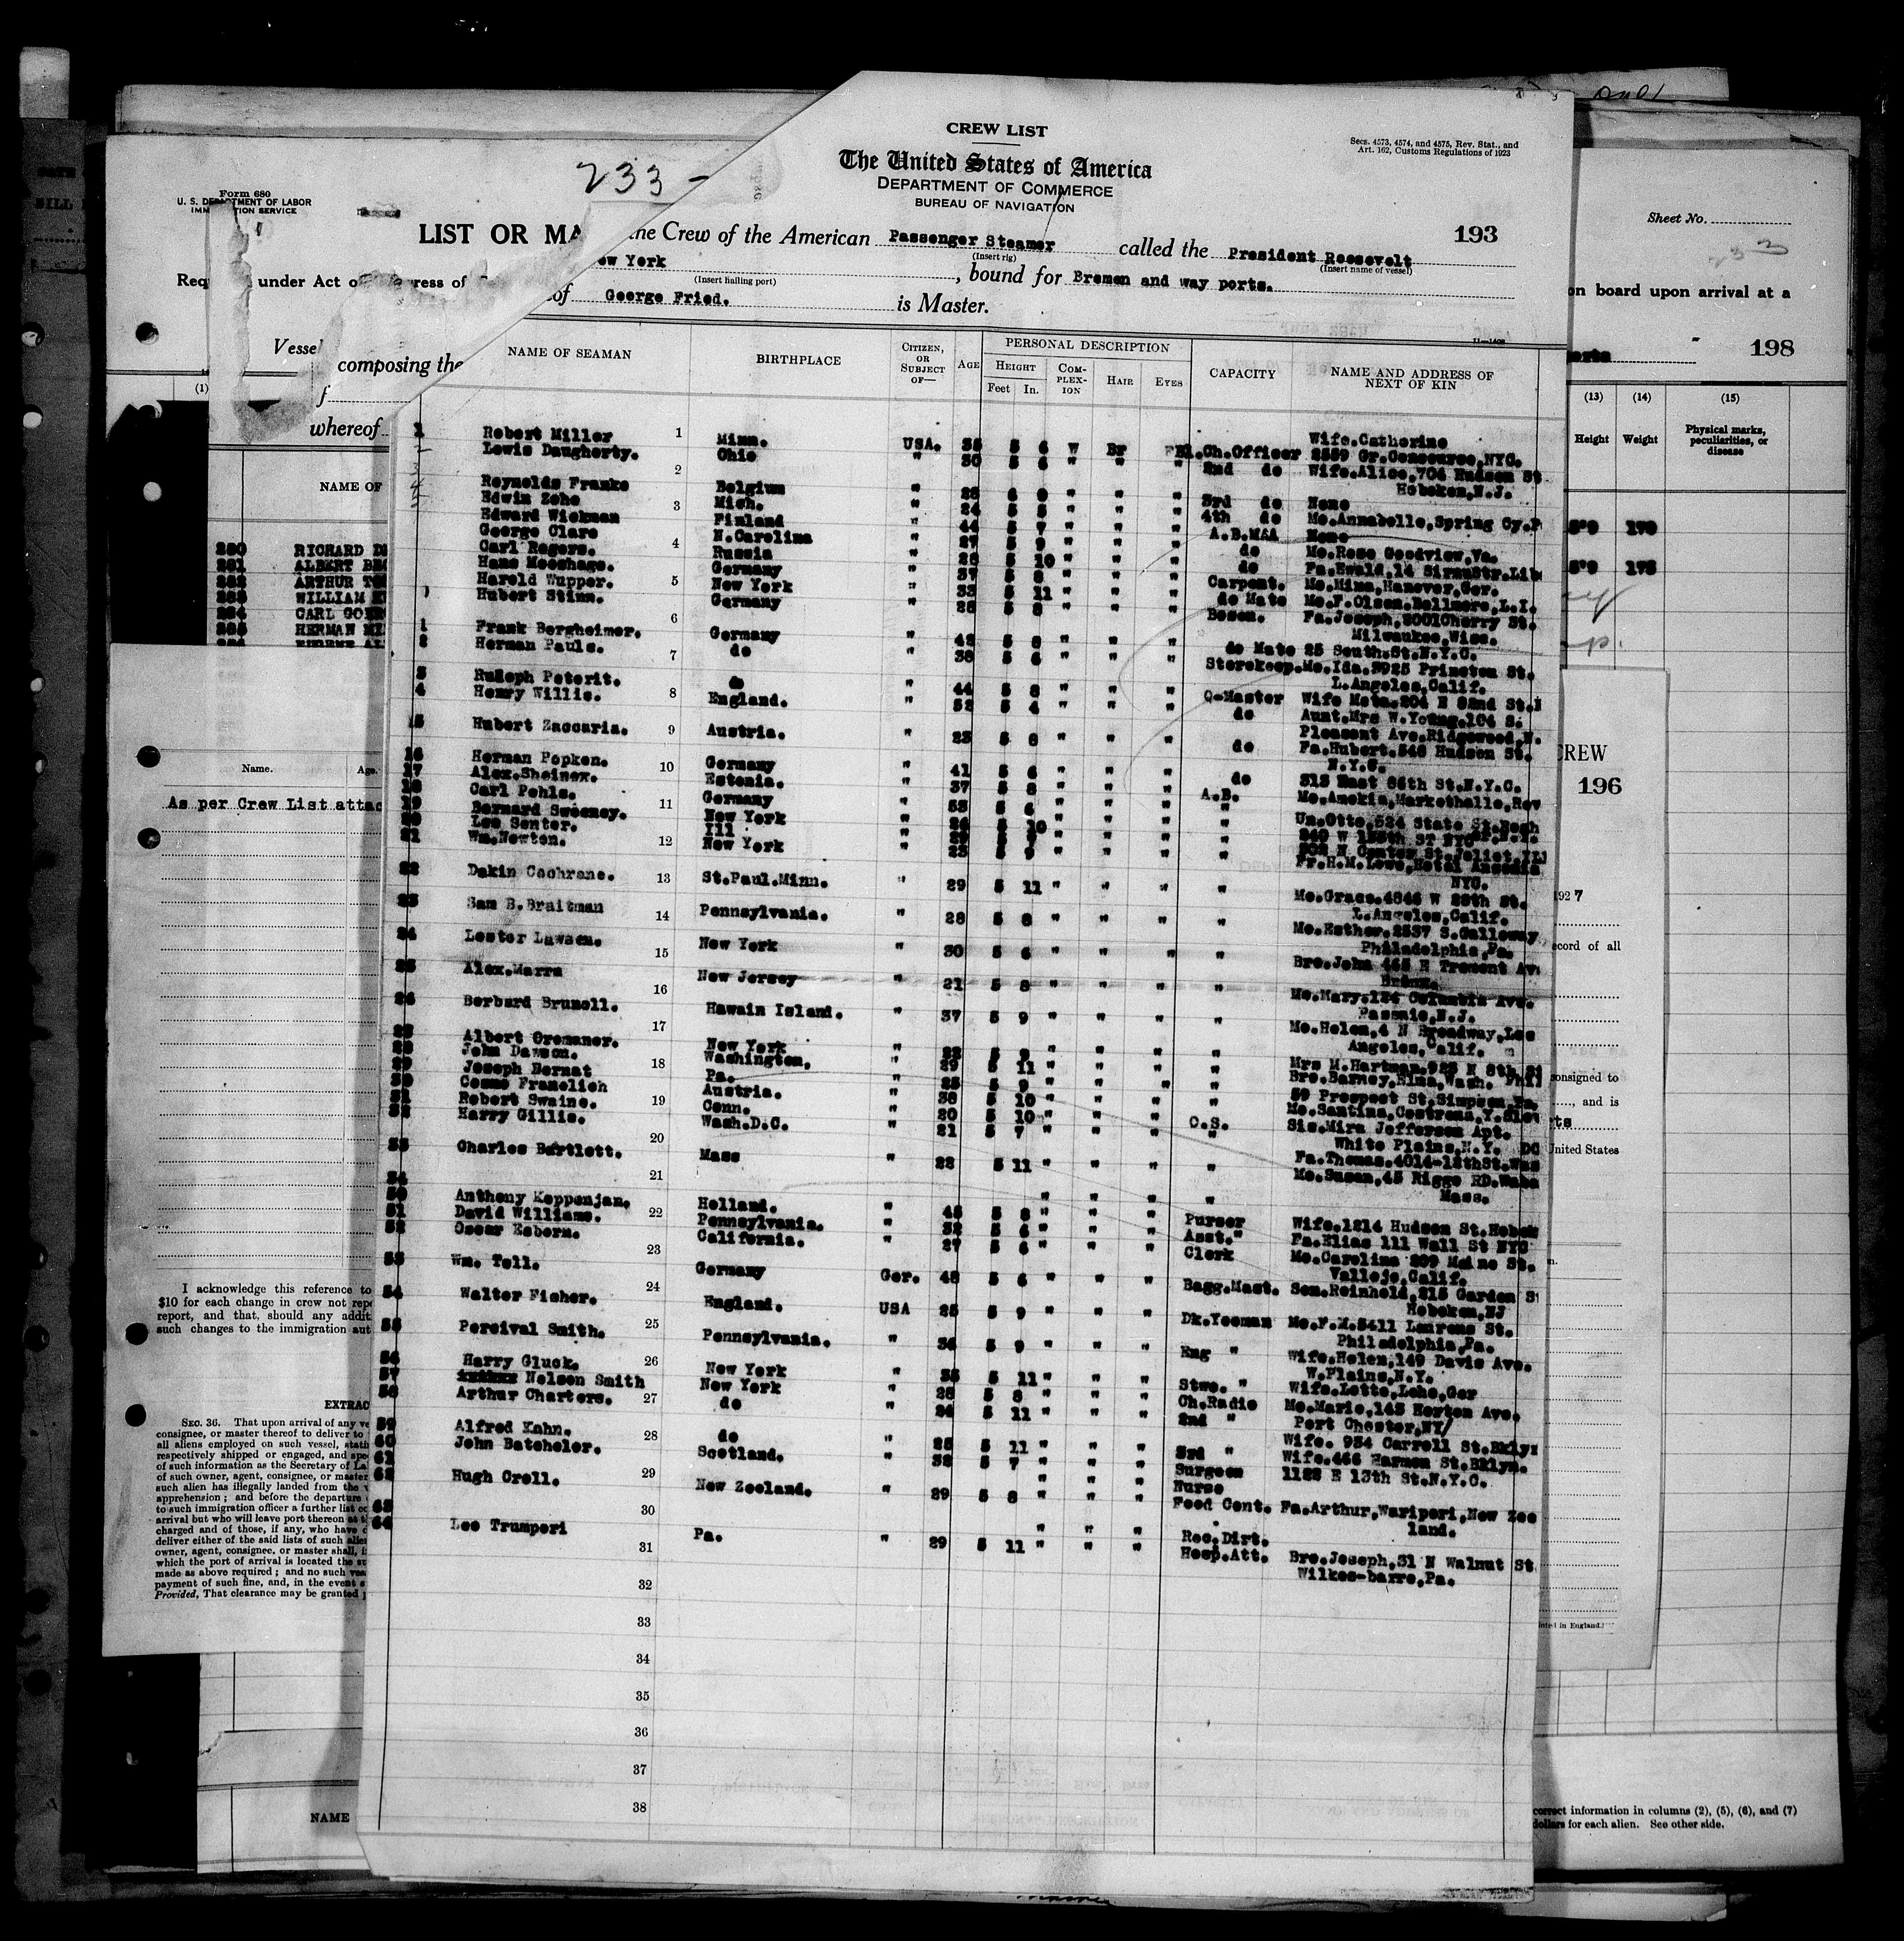 CREW LIST
Secs. 4573, 4574, and 4575, Rev. Stat., and
Art. 162, Customs Regulations of 1923
The United States of America
DEPARTMENT OF COMMERCE
BUREAU OF NAVIGATION
233 -
Form 680
U. S. DEPARTMENT OF LABOR
LIST OR MA
the Crew of the American Passenger Steamer called the President Roosevelt
193
(Insert rig) (Insert name of vessel)
ew York , bound for Bremen and way ports.
(Insert hailing port)
of George Fried. is Master.
under Act of
Vessel
composing the
whereof
NAME OF SEAMAN BIRTHPLACE CITIZEN, OR SUBJECT OF— AGE PERSONAL DESCRIPTION CAPACITY NAME AND ADDRESS OF NEXT OF KIN
HEIGHT COMPLEXION HAIR EYES
Feet In.
1 Robert Miller 1 Minn. USA. 35 5 6 W Br Ch.Officer Wife.Catherine
2559 Gr.Concourse,NYC.
2 Lewis Daugherty. Ohio " 30 5 6 " " " 2nd do Wife.Alice,704 Hudson St
Hoboken,N.J.
Reynolds Franke Belgium " " " " 3rd do None
Edwin Zehe Mich. " 24 5 5 " " " 4th do Mo.Annabelle,Spring Cy.P
Edward Wickman Finland " 44 5 7 " " " A.B.M&A None
George Clare N.Carolina " 27 5 9 " " " do Mo.Rose Goodview,Va.
Carl Rogers. Russia " 28 5 10 " " " do
Hans Mooshage. Germany " 37 5 8 " " " Carpent. Mo.Mina,Hanover,Ger.
Harold Wupper. New York " 33 5 11 " " " do Mate Mo.F.Olsen.Bellmore,L.I.
Hubert Stinn. Germany " 28 5 8 " " " Bosun. Fa.Joseph,2001Cherry St.
Milwaukee,Wisc.
1 Frank Bergheimer. Germany " 42 5 8 " " " do Mate 25 South.St.N.Y.C.
2 Herman Pauls. do " 38 5 6 " " " Storekeep. Mo.Ida.3925 Princton St.
L.Angeles,Calif.
3 Rudoph Peterit. do " 44 5 8 " " " Q-Master Wife Meta.204 E 82nd St.
4 Henry Willis. England. " 52 5 4 " " " do Aunt.Mrs W.Young.104 S.
Pleasant Ave.Ridgewood,N.
15 Hubert Zaccaria. Austria. " 23 5 8 " " " do Fa.Hubert.540 Hudson St.
N.Y.C.
16 Herman Popken. Germany " 41 5 6 " " " do 313 East 86th St.N.Y.C.
17 Alex.Sheinex. Estonia. " 37 5 8 " " " A.B. Mo.Amekia,Markethalle,Rev
18 Carl Pohls. Germany " 53 5 6 " " " " Un.Otto,524 State St.
19 Bernard Sweeney. New York " 5 10 " " " "
20 Leo Senter. Ill "
21 Wm.Newton. New York " 23 5 9 " " " " Fr.H.M.Lowe,Hotel Ansonia
NYC.
22 Dakin Cochrane. St.Paul.Minn. " 29 5 11 " " " " Mo.Grace.4846 W 28th St.
L.Angeles,Calif.
23 Sam B.Braitman Pennsylvania. " 28 5 8 " " " Mo.Esther.2537 S.Galloway
Philadelphia,Pa.
24 Lester Lawson. New York " 30 5 6 " " " Bro.John 465 E Tremont Av
Bronx.
25 Alex.Marra New Jersey " 21 5 8 " " " " Mo.Mary.124 Columbia Ave.
Passaic,N.J.
26 Berbard Brunell. Hawain Island. " 37 5 9 " " " " Mo.Helen,4 N Broadway,Los
Angeles,Calif.
Albert Gremaner. New York " 22 5 9 " " " " Mrs M.Hartman.925 N 8th.St
28 John Dawson. Washington. " 29 5 11 " " " " Bro.Barney,Elma,Wash.
29 Joseph Bernat Pa. " 25 5 9 " " " " 59 Prospect St.Simpson,Pa.
30 Cosmo Franelich Austria. " 38 5 10 " " " " Mo.Santina,
31 Robert Swaine. Conn. " 20 5 10 " " " O.S. Sis.Mira Jefferson Apt.
White Plains,N.Y.
32 Harry Gillis. Wash.D.C. " 21 5 7 " " " " Fa.Thomas.4014-13thSt.Was DC
33 Charles Bartlett. Mass " 22 5 11 " " " " Mo.Susan,45 Riggs RD.Waba
Mass.
34 " " " "
50 Anthony Koppenjan. Holland. " 45 5 8 " " " Purser Wife.1214 Hudson St.Hobok
51 David Williams. Pennsylvania. " 32 5 6 " " " Asst." Fa.Elias 111 Wall St NYC
52 Oscar Esborn. California. " 27 5 6 " " " Clerk Mo.Carolina 209 Maine St.
Vallejo,Calif.
53 Wm. Tell. Germany Ger. 48 5 6 " " " Bagg.Mast. Son.Reinhold,215 Garden St
Hoboken,NJ
54 Walter Fisher. England. USA 25 5 9 " " " Dk.Yeoman Mo.F.M.5411 Laurens St.
Philadelphia,Pa.
55 Percival Smith. Pennsylvania. " 34 5 9 " " " Eng " Wife.Helen,149 Davis Ave.
W.Plains,N.Y.
56 Harry Gluck. New York " 35 5 11 " " " Stwo. " Wife.Lotte,Lehe,Ger
57 Nelson Smith New York " 28 5 8 " " " Ch.Radio Mo.Marie,143 Horton Ave.
Port Chester,NY/
58 Arthur Charters. do " 24 5 11 " " " 2nd " Wife. 954 Carroll St.Bklyn
59 Alfred Kahn. do " 25 5 11 " " " 3rd " Wife.466 Harmon St.Bklyn.
60 John Batcheler. Scotland. " 32 5 7 " " " Surgeon 1122 E 13th St.N.Y.C.
61 " " " Nurse
62 Hugh Crell. New Zeeland. " 29 5 8 " " " Food Cont. Fa.Arthur,Waripori,New Zee
land.
63 " " " Rec.Dirt.
64 Leo Trumpori Pa. " 29 5 11 " " " Hosp.Att. Bro.Joseph,31 N Walnut St
Wilkes-barre,Pa.
1
2
3
4
5
6
7
8
9
10
11
12
13
14
15
16
17
18
19
20
21
22
23
24
25
26
27
28
29
30
31
32
33
34
35
36
37
38
Sheet No.
on board upon arrival at a
198
(1)
(13) (14) (15)
Height Weight Physical marks, peculiarities, or disease
NAME OF
280 RICHARD
281 ALBERT
282 ARTHUR
283 WILLIAM
284 CARL
285 HERMAN
5'9 170
5'9 175
CREW
196
Name. Age.
As per Crew List attac
1927
record of all
consigned to
, and is
United States
I acknowledge this reference to
$10 for each change in crew not
report, and that, should any
such changes to the immigration
EXTRAC
SEC. 36. That upon arrival of any
consignee, or master thereof to deliver to
all aliens employed on such vessel,
respectively shipped or engaged, and
of such information as the Secretary of
of such owner, agent, consignee, or master
such alien has illegally landed from the
apprehension; and before the departure
to such immigration officer a further list
arrival but who will leave port thereon
charged and of those, if any, who have
deliver either of the said lists of such
owner, agent, consignee, or master shall,
which the port of arrival is located the
made as above required; and no such
payment of such fine, and, in the event
Provided, That clearance may be granted
Printed in England.
NAME
correct information in columns (2), (5), (6), and (7)
dollars for each alien. See other side.